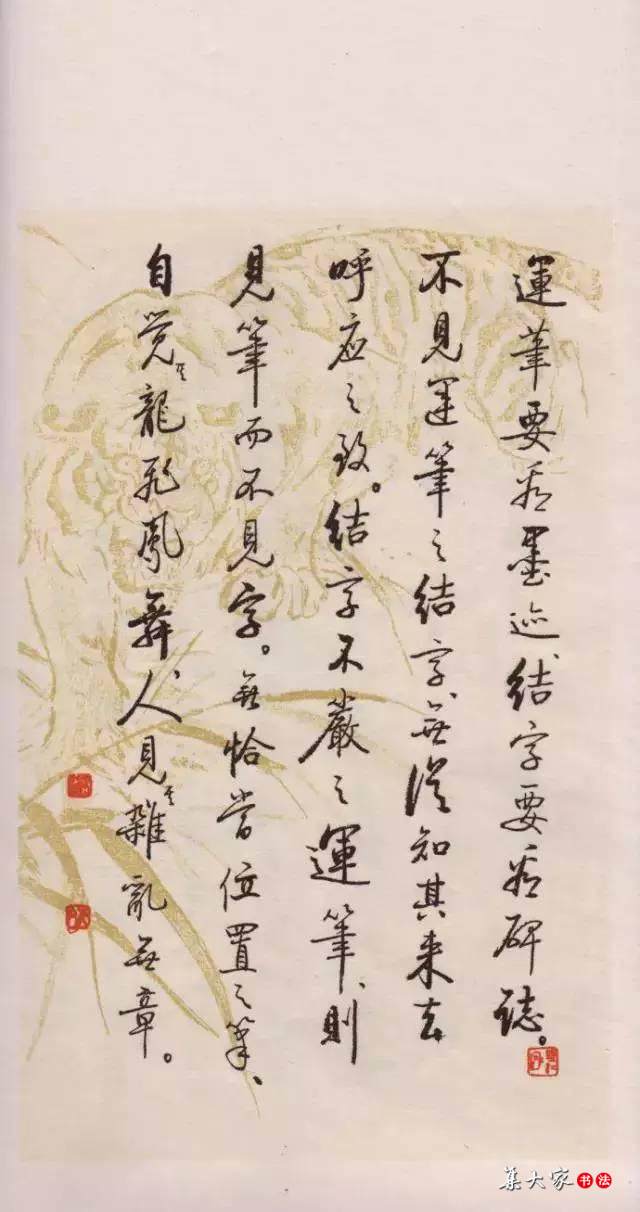 運筆要看墨迹、結字要看碑誌。
不見運筆之結字、無從知其来去
呼应之致。結字不嚴之運筆、則
見筆而不見字。無恰當位置之筆、
自觉其龍飛鳳舞、人見其雜亂無章。
集大家书法